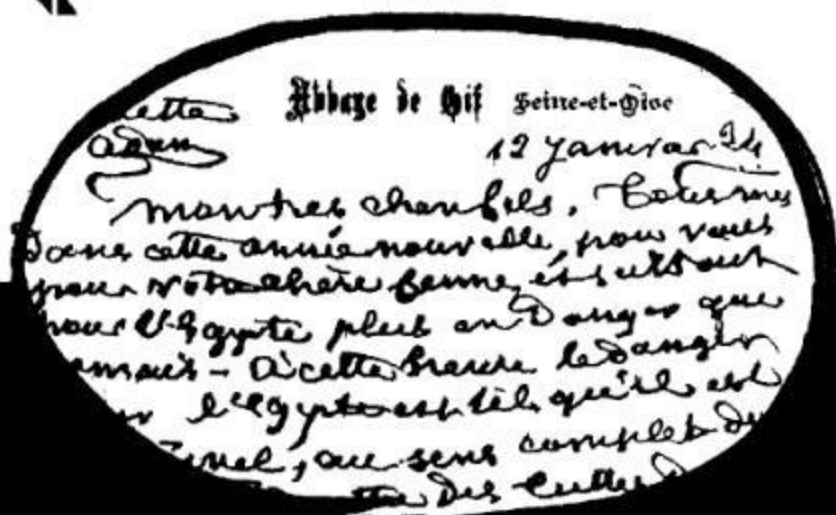 Abbaye de Gif Seine-et-Oise
12 Janvier 24
mon tres cher fils,
Dans cette année nouvelle, pour vous
pour votre chère femme, et surtout
pour l'Egypte plus en Danger que
jamais - à cette heure le danger
l'Egypte est tel qu'il est
au sens complet du
des